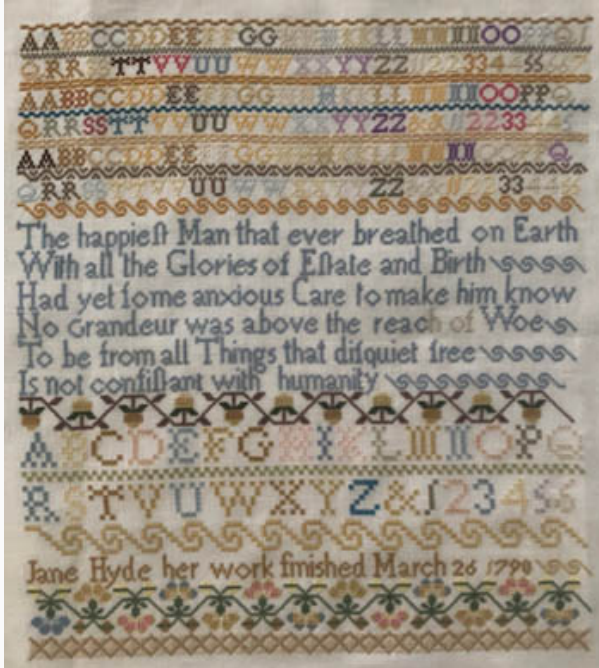 AABBCCDDEEFFGG KLLMMNNOOPPQ
QRR TTVVUUWWXXYYZZ 223345566
AABBCCDDEEFFGG KLLMMNNOOPPQ
QRRSSTTVVUUWWXXYYZZ&& 2233445
AABBCCDDEEFFGG KLL NN Q
QRRSSTTVVUUWWXXYYZZ&& 2233445
The happieſt Man that ever breathed on Earth
With all the Glories of Eſtate and Birth
Had yet ſome anxious Care to make him know
No Grandeur was above the reach of Woe
To be from all Things that diſquiet free
Is not conſiſtant with humanity
ABCDEFGHIKLMNOPQ
RSTVUWXYZ&123456
Jane Hyde her work finished March 26 1790